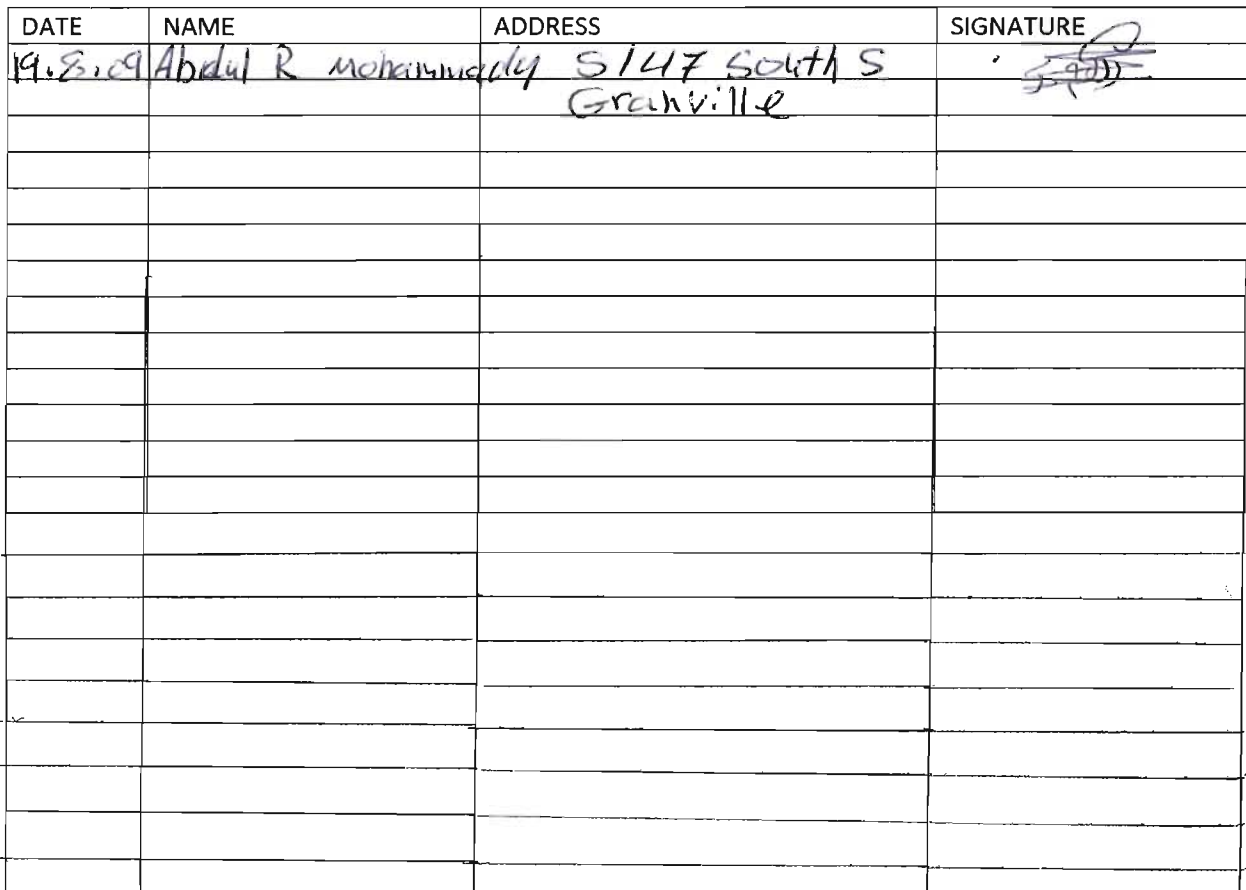 DATE NAME ADDRESS SIGNATURE
19.8.09 Abdul R Mohammady 5/47 South S
Granville